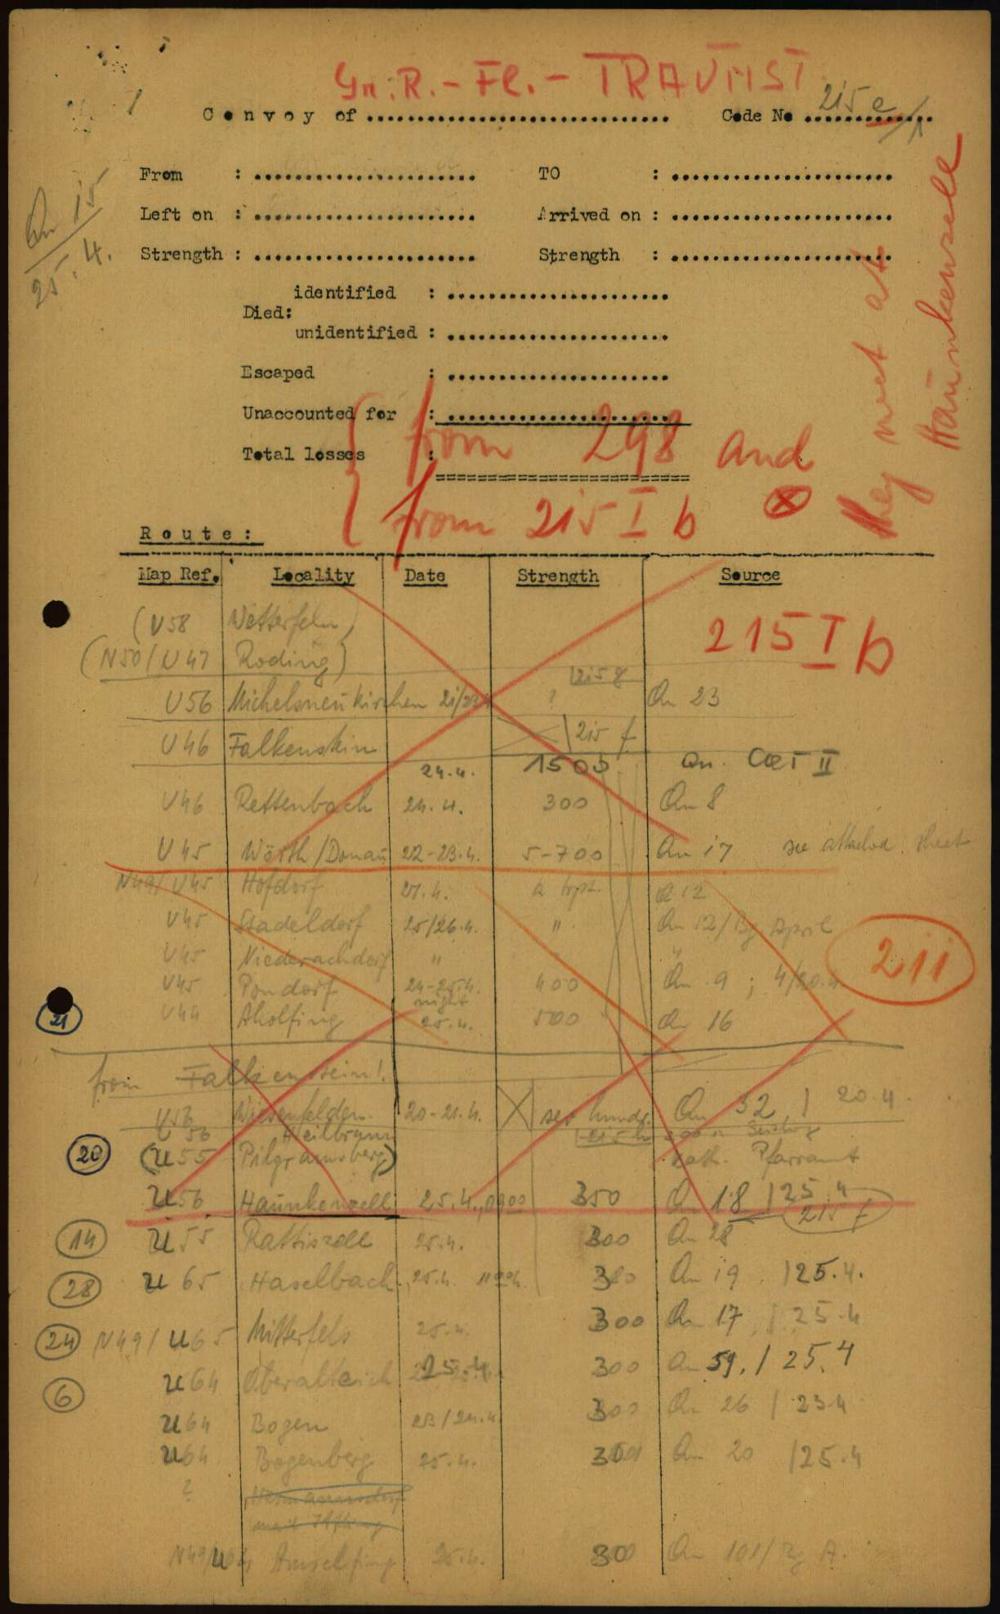 Gn.R.-Fl.-TRAUNST
Convoy of .............................. Code No 215 e
From : ...................... TO : ......................
An 15
25.4.
Left on : ...................... Arrived on : ......................
Strength : ...................... Strength : ......................
identified : ......................
Died:
unidentified : ......................
Escaped : ......................
Unaccounted for : ......................
Total losses :
from 298 and
from 215 I b
they meet at
Haunkenzell
Route:
Map Ref. Locality Date Strength Source
215 I b
(U58 Wetterfeln)
(N50/U47 Roding)
215 g
U56 Michelsneukirchen ? An 23
215 f
U46 Falkenstein
24.4. 1500 An. Cet II
U46 Rettenbach 24.4. 300 An 8
U45 Wörth/Donau 22-23.4. 5-700 An 17 see attached sheet
N49/U45 Hofdorf 4. 12
U45 Stadeldorf 25/26.4. " An 12/ April
U45 Niederachdorf "
211
U45 Pondorf 24-25.4. 400 An 9 ;
night
21
U44 Aholfing 25.4. 500 An 16
from Falkenstein!
U56 Wiesenfelden 20-21.4. sev hundr. An 32 / 20.4.
U56 Heilbrunn
20 (U55 Pilgramsberg) kath. Pfarramt
U56 Haunkenzell 25.4., 350 An 18 / 25.4
215 f
14 U55 Rattiszell 25.4. 300 An 28
28 U65 Haselbach 25.4. 300 An 19 / 25.4.
24 N49/U65 Mitterfels 25.4. 300 An 17 / 25.4
6 U64 Oberalteich 25.4. 300 An 59. / 25.4
U64 Bogen 23/24.4 300 An 26 / 23.4
U64 Bogenberg 25.4. 300 An 20 / 25.4
?
N49/U Amselfing 25.4. 300 An 101/